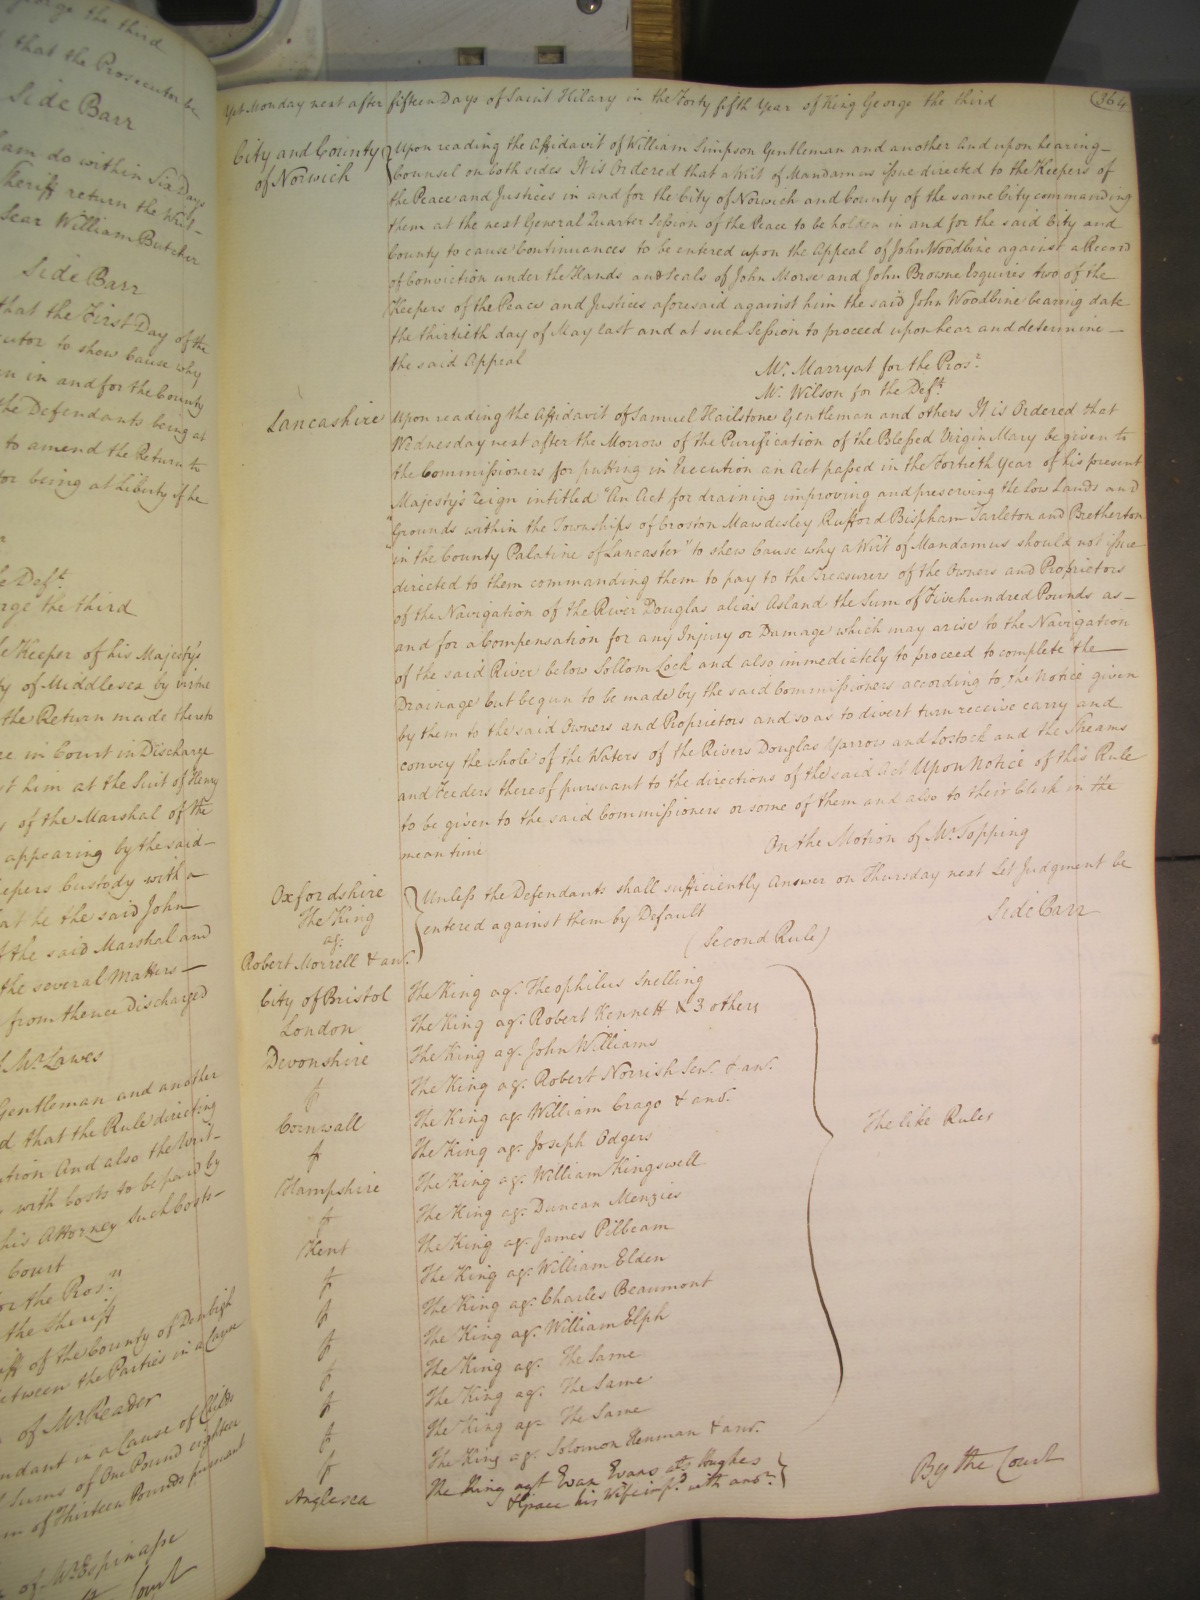 George the third
that the Prosecutor be
Side Barr
do within Six Days
Sheriff return the Writ
William Butcher
Side Barr
that the First Day of the
to shew Cause why
in and for the County
the Defendants being at
to amend the Return to
for being at Liberty if he
Def.t
George the third
Keeper of his Majesty's
of Middlesex by virtue
the Return made thereto
in Court in Discharge
him at the Suit of Henry
of the Marshal of the
appearing by the said
keepers Custody with a
that he the said John
the said Marshal and
the several Matters
from thence Discharged
Mr. Lawes
Gentleman and another
that the Rule directing
And also the Writ
with Costs to be paid by
his Attorney Such Costs
Court
for the Pros.r
the Sheriff
of the County of Denbigh
between the Parties in a Cause
of Mr. Reader
in a Cause of
Sums of One Pound eighteen
of Thirteen Pounds pursuant
of Mr. Espinasse
Court
Yet Monday next after fifteen Days of Saint Hilary in the Forty fifth Year of King George the third
364
City and County of Norwich } Upon reading the Affidavit of William Simpson Gentleman and another And upon hearing
Counsel on both sides It is Ordered that a Writ of Mandamus issue directed to the Keepers of
the Peace and Justices in and for the City of Norwich and County of the same City commanding
them at the next General Quarter Session of the Peace to be holden in and for the said City and
County to cause Continuances to be entered upon the Appeal of John Woodbine against a Record
of Conviction under the Hands and Seals of John Morse and John Browne Esquires two of the
Keepers of the Peace and Justices aforesaid against him the said John Woodbine bearing date
the thirtieth day of May last and at such Session to proceed upon hear and determine
the said Appeal
Mr. Marryat for the Pros.r
Mr. Wilson for the Def.t
Lancashire Upon reading the Affidavit of Samuel Hailstone Gentleman and others It is Ordered that
Wednesday next after the Morrow of the Purification of the Blessed Virgin Mary be given to
the Commissioners for putting in Execution an Act passed in the Fortieth Year of his present
Majesty's reign intitled "An Act for draining improving and preserving the Low Lands and
"Grounds within the Townships of Croston Mawdesley Rufford Bispham Tarleton and Bretherton
"in the County Palatine of Lancaster" to shew Cause why a Writ of Mandamus should not issue
directed to them commanding them to pay to the Treasurers of the Owners and Proprietors
of the Navigation of the River Douglas alias Asland the Sum of Five hundred Pounds as
and for a Compensation for any Injury or Damage which may arise to the Navigation
of the said River below Sollom Lock and also immediately to proceed to complete the
Drainage Cut begun to be made by the said Commissioners according to the Notice given
by them to the said Owners and Proprietors and so as to divert turn receive carry and
convey the whole of the Waters of the Rivers Douglas Yarrow and Lostock and the Streams
and Feeders thereof pursuant to the directions of the said Act Upon Notice of this Rule
to be given to the said Commissioners or some of them and also to their Clerk in the
mean time
On the Motion of Mr. Topping
Oxfordshire
The King
ag.t
Robert Morrell & anr.
Unless the Defendants shall sufficiently Answer on Thursday next Let Judgment be
entered against them by Default
Side Barr
(Second Rule)
City of Bristol The King ag.t Theophilus Snelling
London The King ag.t Robert Kennett & 3 others
Devonshire The King ag.t John Williams
f The King ag.t Robert Norrish Sen.r & an.r
Cornwall The King ag.t William Crago & anr.
f The King ag.t Joseph Odgers
Hampshire The King ag.t William Kingswell
f The King ag.t Duncan Menzies
Kent The King ag.t James Pilbeam
f The King ag.t William Elden
f The King ag.t Charles Beaumont
f The King ag.t William Elph
f The King ag.t The Same
f The King ag.t The Same
f The King ag.t The Same
f The King ag.t Solomon Henman & anr.
The like Rules
Anglesea The King agt Evan Evans ats Hughes
& Grace his Wife imp.d with anor.
By the Court